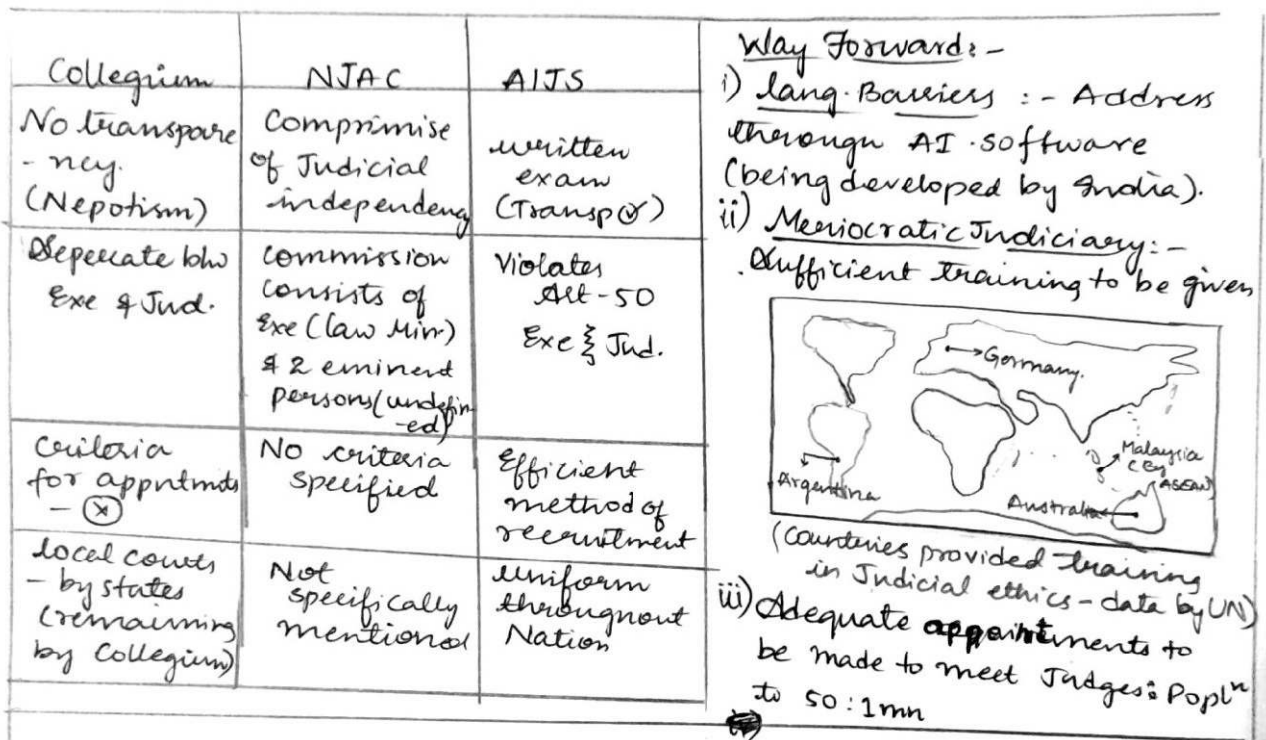 Collegium
NJAC
AIJS
No transpare
- ncy.
(Nepotism)
Comprimise
of Judicial
independency
written
exam
(Transp✓)
Seperate b/w
Exe & Jud.
Commission
consists of
Exe (law Min.)
& 2 eminent
persons (undefin
-ed)
Violates
Art-50
Exe Jud.
criteria
for appntmnts
- ⓧ
No criteria
specified
Efficient
method of
recruitment
local courts
- by states
(remainning
by Collegium)
Not
specifically
mentioned
Uniform
throughout
Nation
Way Forward:-
i) lang. Barriers :- Address
through AI. software
(being developed by India).
ii) Meriocratic Judiciary:-
Sufficient training to be given
Germany.
Malaysia
ASEAN)
Argentina
Australia
(Countries provided training
in Judicial ethics - data by UN)
iii) Adequate appointments to
be made to meet Judges: Popln
to 50:1mn